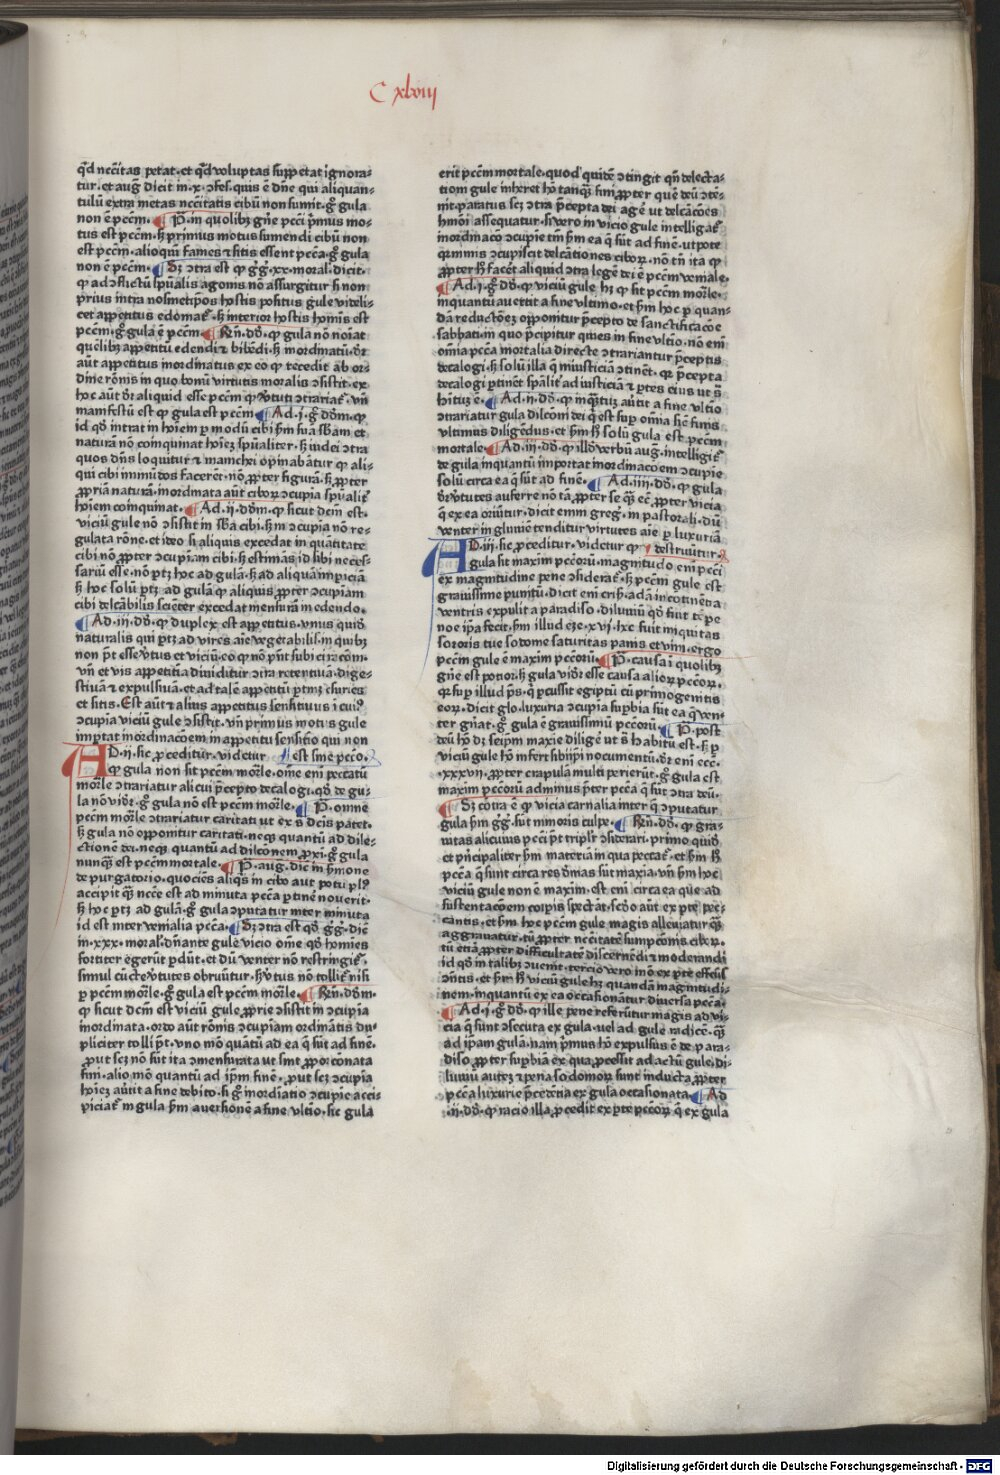 C xlviij
q̄d nccītas petat·et q̄d voluptas suppetat ignora⸗
tur·et auḡ dicit in·x·ɔfes·quis ē dn̄e qui aliquan⸗
tulū extra metas nccītatis cibū non sumit·gͦ gula
non ē pccm̄·¶ P·in quolibꝫ gn̄e pccī pͥmus mo⸗
tus est pccm̄·sꝫ primus motus sumendi cibū non
est pccm̄·alioqui fames ⁊ sitis essent pccā·gͦ gula
non ē pccm̄·¶ Sꝫ ɔtra est qͥ gͥgͥ·xx·moral·dicit·
qͥ ad ɔflictū spūalis agonis nō assurgitur si non
prius intra nosmetipos hostis positus gule videli⸗
cet appetitus edomat̄·sꝫ interior hostis hominis est
pccm̄·gͦ gula ē pccm̄·¶ Rn̄·dō·qͥ gula nō noīat
quēlibꝫ appetitū edendi ⁊ bibēdi·sꝫ inordinatū·dr̄
aūt appetitus inordinatus ex eo qͥ recedit ab or⸗
dine rōnis in quo bonū virtutis moralis ɔsistit·ex
hoc aūt dr̄ aliquid esse pccm̄ qͥ v̄tuti ɔtrariat̄·vn̄
manifestū est qͥ gula est pccm̄·¶ Ad·i·gͦ dō̄m·qͥ
id qō intrat in hoīem p modū cibi sm̄ suā sb̄am et
naturā nō coinquinat hoīeꝫ spūaliter·sꝫ iudei ɔtra
quos dn̄s loquitur ⁊ manichei opinabātur qͥ ali⸗
qui cibi immūdos facerēt·nō ꝓpter figurā·sꝫ ꝓpter
ꝓpriā naturā·inordinata aūt ciborꝫ ɔcupīa spūalit̄
hoīem coinquinat·¶ Ad·ii·dō̄m·qͥ sicut dcm̄ est·
viciū gule nō ɔsistit in sb̄a cibi·sꝫ in ɔcupīa nō re⸗
gulata rōne·et ideo si aliquis excedat in quātitate
cibi nō ꝓpter ɔcupīam cibi·sꝫ estimās id sibi neces⸗
sariū esse·nō ꝑtꝫ hoc ad gulā·sꝫ ad aliquā impīciā
sꝫ hoc solū ꝑtꝫ ad gulā qͥ aliquis ꝓpter ɔcupīam
cibi delcābilis scienter excedat mensurā in edendo·
¶ Ad·iii·dō·qͥ duplex est appetitus·vnus quid̄
naturalis qui ꝑtꝫ ad vires aīe vegetabilis·in quibꝫ
non pt̄ esse v̄tus et viciū·eo qͥ nō pn̄t subici rōni·
vn̄ et vis appetitīa diuiditur ɔtra retentiuā·dige⸗
stiuā ⁊ expulsiuā·et ad talē appetitū ꝑtinꝫ esuries
et sitis·Est aūt ⁊ alius appetitus sensitiuus ī cuiꝰ
ɔcupīa viciū gule ɔsistit·vn̄ primus motus gule
imꝑtat inordinacōem in appetitu sensitīo qui non
AD·ii·sic ꝓceditur·videtur ¶ est sine pccō·
qͥ gula non sit pccm̄ mor̄le·omē enī peccatū
mor̄le ɔtrariatur alicui pͥcepto decalogi·qō de gu⸗
la nō vidr̄·gͦ gula nō est pccm̄ mor̄le·¶ P·omne
pccm̄ mor̄le ɔtrariatur caritati ut ex s̄ dcīs patet·
sꝫ gula nō opponitur caritati·neqꝫ quantū ad dile⸗
ctionē dei·neqꝫ quantū ad dilcōnem ꝓxī·gͦ gula
nunqꝫ est pccm̄ mortale·¶ P·aug·dic̄ in sermone
de purgatorio·quociēs aliqͥs in cibo aut potu plꝰ
accipit qꝫ nccē est ad minuta pccā ꝑtinē nouerit·
sꝫ hoc ꝑtꝫ ad gulā·gͦ gula ɔputatur inter minuta
id est inter venialia pccā·¶ Sꝫ ɔtra est qō gͥgͥ·dic̄
in·xxx·moral·dn̄ante gule vicio omē qō homies
fortiter egerūt pdūt·et dū venter nō restringit̄·
simul cūcte v̄tutes obruūtur·sꝫ v̄tus nō tollit̄ nisi
p pccm̄ mor̄le·gͦ gula est pccm̄ mor̄le·¶ Rn̄·dō̄m·
qͥ sicut dcm̄ est viciū gule ꝓprie ɔsistit in ɔcupīa
inordinata·ordo aūt rōnis ɔcupīam ordinātis du⸗
pliciter tolli pt̄·vno mō quātū ad ea q̄ sūt ad finē·
ꝓut scꝫ nō sūt ita ɔmensurata ut sint ꝓporcōnata
fini·alio mō quantū ad ip̄m finē·ꝓut scꝫ ɔcupīa
hoīeꝫ aūtit a fine debito·si gͦ inordiatio ɔcupīe acci⸗
piat̄ in gula sm̄ auersionē a fine vltīo·sic gula
erit pccm̄ mortale·quod quidē ɔtingit qn̄ delecta⸗
tioni gule inheret hō tanqꝫ fini ꝓpter quē deū ɔtē⸗
nit·paratus scꝫ ɔtra pͥcepta dei agē ut delcācōes
hmōi assequatur·si vero in vicio gule intelligat̄
inordinacō ɔcupīe tm̄ sm̄ ea q̄ sūt ad finē·utpote
qͥ nimis ɔcupiscit delcātiones ciborꝫ·nō tn̄ ita qͥ
ꝓpter h̄ facet aliquid ɔtra legē dei ē pccm̄ veniale·
¶ Ad·i·gͦ dō·qͥ viciū gule hꝫ qͥ sit pccm̄ mor̄le·
inquantū auertit a fine vltimo·et sm̄ hoc p quan⸗
dā reductōeꝫ opponitur pͥcepto de sanctificacōe
sabbati·in quo pͥcipitur quies in fine vltīo·nō enī
om̄ia pccā mortalia directe ɔtrariantur pͥceptis
decalogi·sꝫ solū illa q̄ iniusticiā ɔtinēt·qͥ pͥcepta
decalogi ꝑtinēt spāliē ad iusticiā ⁊ ꝑtes eius ut s̄
hītū e·¶ Ad·ii·dō·qͥ inqꝫtū aūtit a fine vltīo
ɔtrariatur gula dilcōni dei q̄ est sup om̄ia sic̄ finis
vltimus diligēdus·et sm̄ h̄ solū gula est pccm̄
mortale·¶ Ad·iii·dō·qͥ illō verbū aug·intelligit̄
de gula inquantū importat inordinacōem ɔcupīe
solū circa ea q̄ sūt ad finē·¶ Ad·iiii·dō·qͥ gula
dr̄ v̄tutes auferre nō tā ꝓpter se qꝫ ecͥ ꝓpter vicia
q̄ ex ea oriūtur·dicit enim greg·in pastorali·dū
venter in gluuiē tenditur virtutes aīe p luxuriā
AD·iii·sic ꝓceditur·videtur qͥ ¶ destruūtur·
gula sit maximū pccorū·magnitudo enī pccī
ex magnitudine pene ɔsiderat̄·sꝫ pccm̄ gule est
grauissime punitū·dicit enī cris·adā incotinētia
ventris expulit a paradiso·diluuiū qō fiūt tꝑe
noe ip̄a fecit·sm̄ illud eꝫe·xvi·hec fuit iniquitas
sororis tue sodome saturitas panis et vini·ergo
pccm̄ gule ē maximū pccorū·¶ P·causa ī quolibꝫ
gn̄e est potior·sꝫ gula vidr̄ esse causa aliorꝫ pccorꝫ·
qͥ sup illud ps̄·q̄ pcussit egiptū cū primogenitis
eorꝫ·dicit glo·luxuria ɔcupīa supbia sūt ea q̄ ven⸗
ter gn̄at·gͦ gula ē grauissimū pccorū·¶ P·post
deū hō dꝫ seipm̄ maxie diligē ut s̄ habitū est·sꝫ p
viciū gule hō infert sibiipī nocumentū·dr̄ enī ecc̄·
·xxxvii·ꝓpter crapulā multi perierūt·gͦ gula est
maximū pccorū adminus pͥter pccā q̄ sūt ɔtra deū·
¶ Sꝫ cōtra ē qͥ vicia carnalia inter q̄ ɔputatur
gula sm̄ gͥgͥ·sūt minoris culpe·¶ Rn̄·dō·qͥ gra⸗
uitas alicuius pccī pt̄ triplr̄ ɔsiderari·primo quid̄
et pͥncipaliter sm̄ materiā in qua peccat̄·et sm̄ h̄
pccā q̄ sunt circa res diuias sūt maxīa·vn̄ sm̄ hoc
viciū gule non ē maximū·est enī circa ea que ad
sustentacōem corpis spectāt·scdō aūt ex pte pec⸗
cantis·et sm̄ hoc pccm̄ gule magis alleuiatur qꝫ
aggrauatur·tū ꝓpter nccitatē sumpcōnis ciborꝫ·
tū etiā ꝓpter difficultatē discernēdi ⁊ moderandi
id qō in talibꝫ ɔuenit·tercio vero mō ex pte effctūs
ɔn̄tis·et sm̄ h̄ viciū gule hꝫ quandā magnitudi⸗
nem·inquantū ex ea occasionātur diuersa pccā·
¶ Ad·i·gͦ dō·qͥ ille pene referūtur magis ad vi⸗
cia q̄ sunt ɔsecuta ex gula·uel ad gule radicē·qꝫ
ad ip̄am gulā·nam pͥmus hō expulsus ē de para⸗
diso ꝓpter supbiā ex qua ꝓcessit ad actū gule·di⸗
luuiū auteꝫ ⁊ pena sodomorꝫ sunt inducta ꝓpter
pccā luxurie pͥcedētia ex gula occasionata·¶ Ad
·ii·dō·qͥ racio illa ꝓcedit ex pte pccorꝫ q̄ ex gula
Digitalisierung gefördert durch die Deutsche Forschungsgemeinschaft - DFG